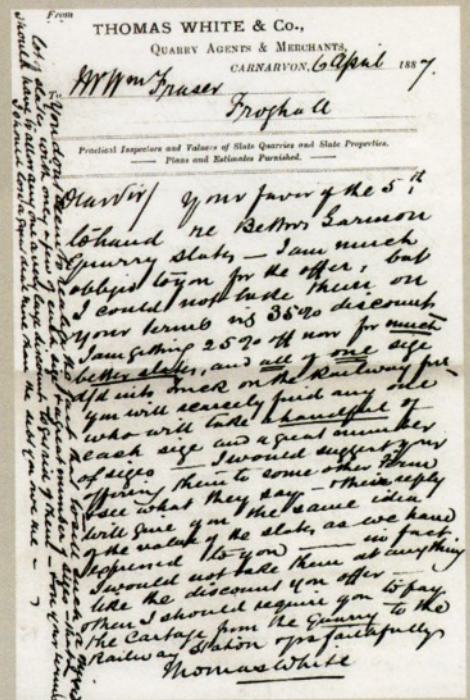 From
THOMAS WHITE & Co.,
QUARRY AGENTS & MERCHANTS,
CARNARVON, 6 April 1887.
To Mr Wm Fraser
Froghall
Practical Inspectors and Valuers of Slate Quarries and Slate Properties.
Plans and Estimates Furnished.
Dear Sir/ Your favor of the 5th
to hand re Bettws Garmon
Quarry slates — I am much
obliged to you for the offer, but
I could not take them on
your terms viz 35% discount
I am getting 25% off now for much
better slates, and all of one size
d/d into truck on the Railway
you will scarcely find any one
who will take a handful of
each size and a great number
of sizes — I would suggest your
offering them to some other firm
& see what they say — their reply
will give you the same idea
of the value of the slates as we have
expressed to you — in fact
I would not take them at anything
like the discount you offer —
then I should require you to pay
the Cartage from the Quarry to the
Railway Station yrs faithfully
Thomas White
You don't seem to realize the fact that to sell such a
lot of slates with only a few of each size & a great number of sizes
should have to allow any one a very large discount to get rid of them — on your terms
I should lose a good deal more than the debt you owe me —